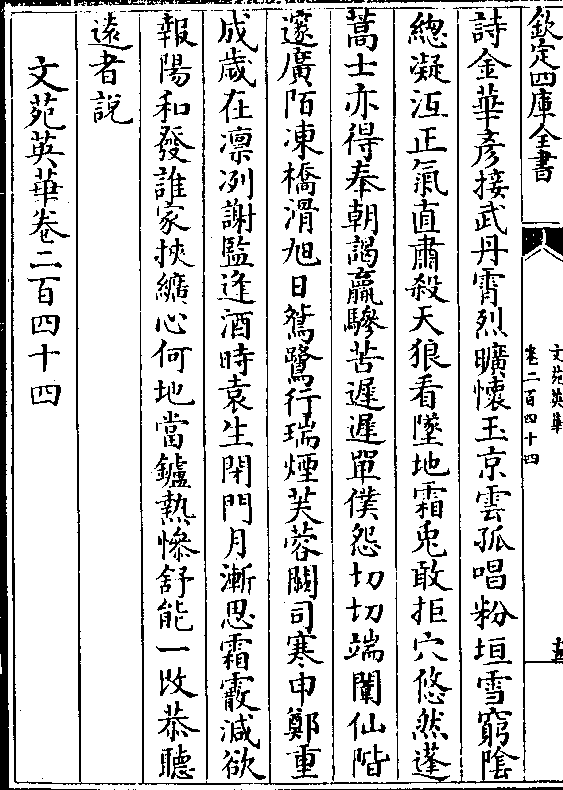 欽定四庫全書
文苑英華
卷二百四十四
詩金華彦接武丹霄烈曠懷玉京雲孤唱粉垣雪窮陰
總凝沍正氣直肅殺天狼看墜地霜兎敢拒穴悠然蓬
蒿士亦得奉朝謁羸驂苦遲遲單僕怨切切端闈仙階
邃廣陌凍橋滑旭日鴛鷺行瑞煙芙蓉闕司寒申鄭重
成歲在凛冽謝監逢酒時袁生閉門月漸思霜霰減欲
報陽和發誰家挾纊心何地當鑪熱慘舒能一改恭聽
遠者説
文苑英華卷二百四十四